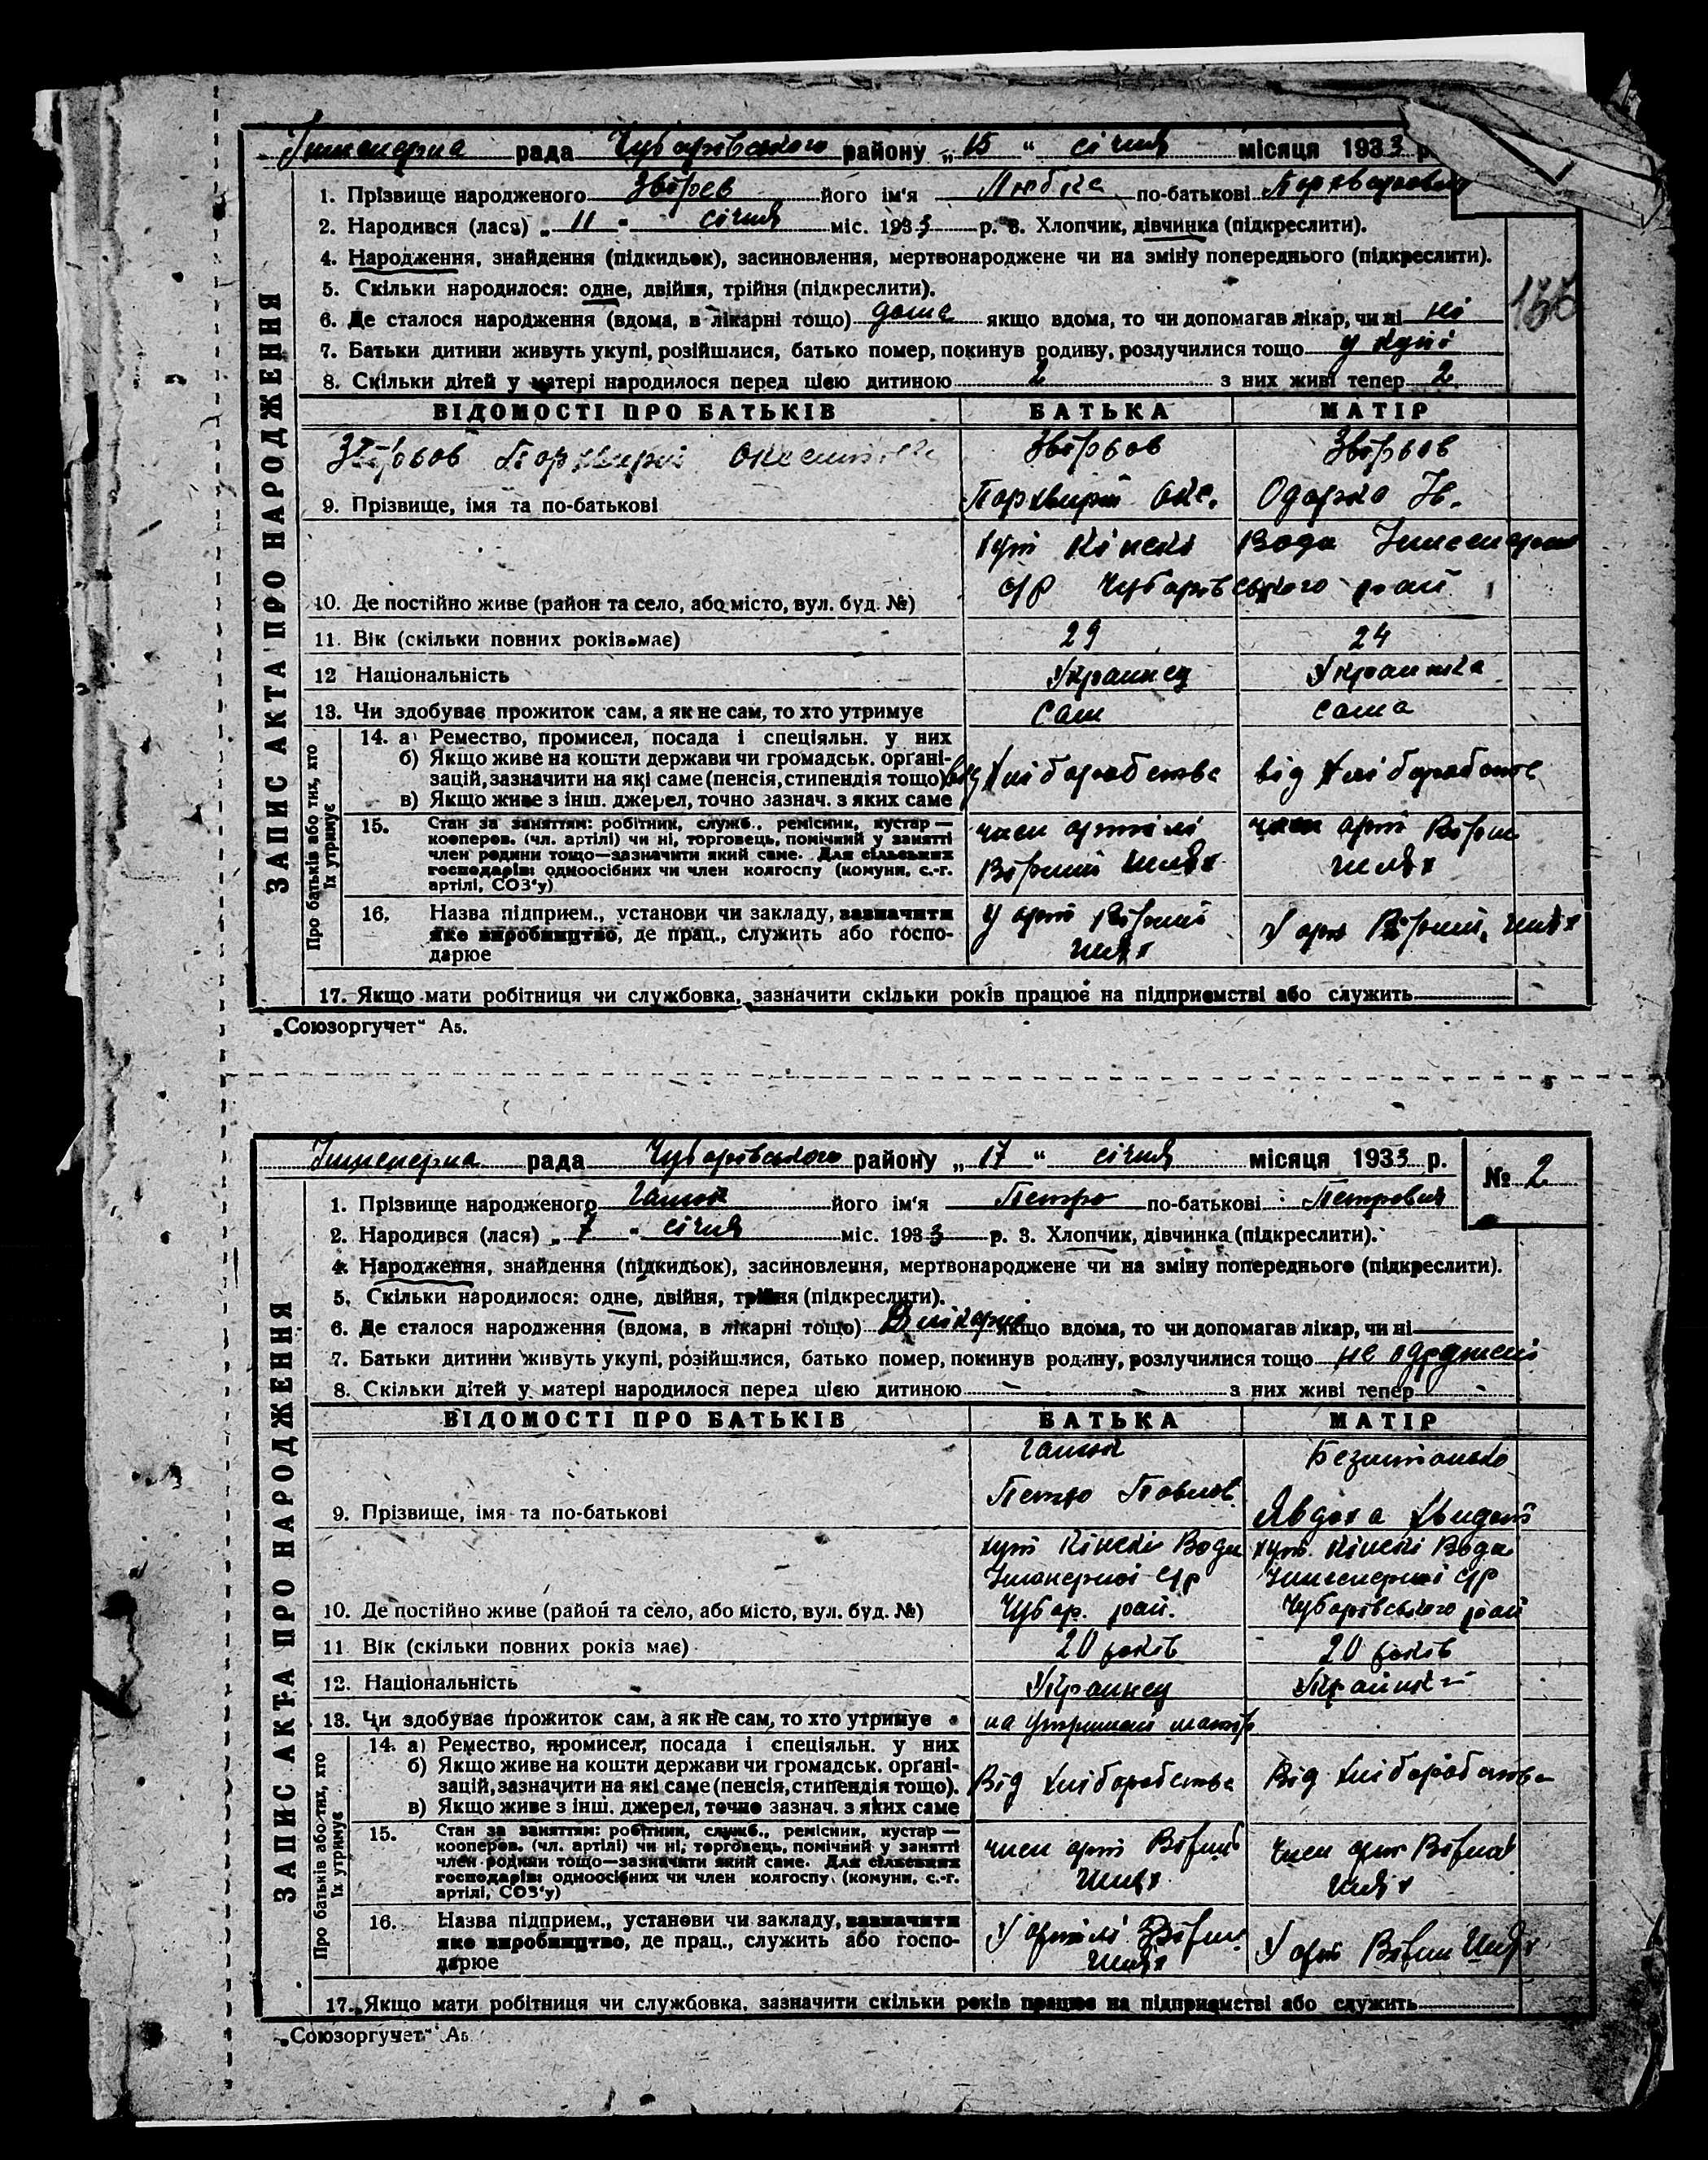 рада Чубарівського району „ 15 “ січня місяця 1933 р.
1. Прізвище народженого Звірев його ім'я Любка по-батькові
2. Народився (лася) „ 11 “ січня міс. 1933 р. 3. Хлопчик, дівчинка (підкреслити).
4. Народження, знайдення (підкидьок), засиновлення, мертвонароджене чи на зміну попереднього (підкреслити).
5. Скільки народилося: одне, двійня, трійня (підкреслити).
6. Де сталося народження (вдома, в лікарні тощо) дома якщо вдома, то чи допомагав лікар, чи ні ні
7. Батьки дитини живуть укупі, розійшлися, батько помер, покинув родину, розлучилися тощо у купі
8. Скільки дітей у матері народилося перед цією дитиною 2 з них живі тепер 2
ЗАПИС АКТА ПРО НАРОДЖЕННЯ
ВІДОМОСТІ ПРО БАТЬКІВ БАТЬКА МАТІР
Звірьов Порхвирій
Звірьов Звірьов
9. Прізвище, імя та по-батькові Порхвирій Окс. Одарка Ів.
хут Кінскі Води
с/р Чубарівського рай
10. Де постійно живе (район та село, або місто, вул. буд. №)
11. Вік (скільки повних років має) 29 24
12 Національність Украинец Украинка
13. Чи здобуває прожиток сам, а як не сам, то хто утримує Сам сама
Про батьків або тих, хто їх утримує
14. а) Ремество, промисел, посада і спеціяльн. у них
б) Якщо живе на кошти держави чи громадськ. орґані-
зацій, зазначити на які саме (пенсія, стипендія тощо) від хліборобства від хліборобства
в) Якщо живе з інш. джерел, точно зазнач. з яких саме
15. Стан за заняттям: робітник, служб., ремісник, кустар—
кооперов. (чл. артілі) чи ні, торговець, помічний у занятті
член родини тощо—зазначити який саме. Для сільських
господарів: одноосібних чи член колгоспу (комуни, с.-г.
артілі, СОЗ'у)
член артілі член арті Вірни
Вірний шлях шлях
16. Назва підприєм., установи чи закладу, зазначити
яке виробництво, де прац., служить або госпо-
дарює
У арті Вірний У арт Вірний шлях
шлях
17. Якщо мати робітниця чи службовка, зазначити скільки років працює на підприємстві або служить
„Союзоргучет“ А5.
рада Чубарівського району „ 17 “ січня місяця 1933 р. № 2
1. Прізвище народженого його ім'я Петро по-батькові Петрович
2. Народився (лася) „ 7 “ січня міс. 1933 р. 3. Хлопчик, дівчинка (підкреслити).
4. Народження, знайдення (підкидьок), засиновлення, мертвонароджене чи на зміну попереднього (підкреслити).
5. Скільки народилося: одне, двійня, трійня (підкреслити).
6. Де сталося народження (вдома, в лікарні тощо) В лікарні якщо вдома, то чи допомагав лікар, чи ні
7. Батьки дитини живуть укупі, розійшлися, батько помер, покинув родину, розлучилися тощо не одружені
8. Скільки дітей у матері народилося перед цією дитиною — з них живі тепер
ЗАПИС АКТА ПРО НАРОДЖЕННЯ
ВІДОМОСТІ ПРО БАТЬКІВ БАТЬКА МАТІР
Петро Павлов
9. Прізвище, імя та по-батькові Явдоха
хут Кінскі Води хут. Кінскі Води
с/р с/р
10. Де постійно живе (район та село, або місто, вул. буд. №) Чубар. рай. Чубарівського рай
11 Вік (скільки повних років має) 20 років 20 років
12. Національність Украинец Украинка
13. Чи здобуває прожиток сам, а як не сам, то хто утримує на утриман матір
Про батьків або тих, хто їх утримує
14. а) Ремество, промисел, посада і спеціяльн. у них
б) Якщо живе на кошти держави чи громадськ. орґані-
зацій, зазначити на які саме (пенсія, стипендія тощо). Від хліборобства Від хліборобства
в) Якщо живе з інш. джерел, точно зазнач. з яких саме
15. Стан за заняттям: робітник, служб., ремісник, кустар—
кооперов. (чл. артілі) чи ні, торговець, помічний у занятті
член родини тощо—зазначити який саме. Для сільських
господарів: одноосібних чи член колгоспу (комуни, с.-г.
артілі, СОЗ'у)
член арті Вірний член арт Вірний
шлях шлях
16. Назва підприєм., установи чи закладу, зазначити
яке виробництво, де прац., служить або госпо-
дарює
У артілі Вірни У арт Вірни Шлях
шлях
17. Якщо мати робітниця чи службовка, зазначити скільки років працює на підприємстві або служить
„Союзоргучет“ А5